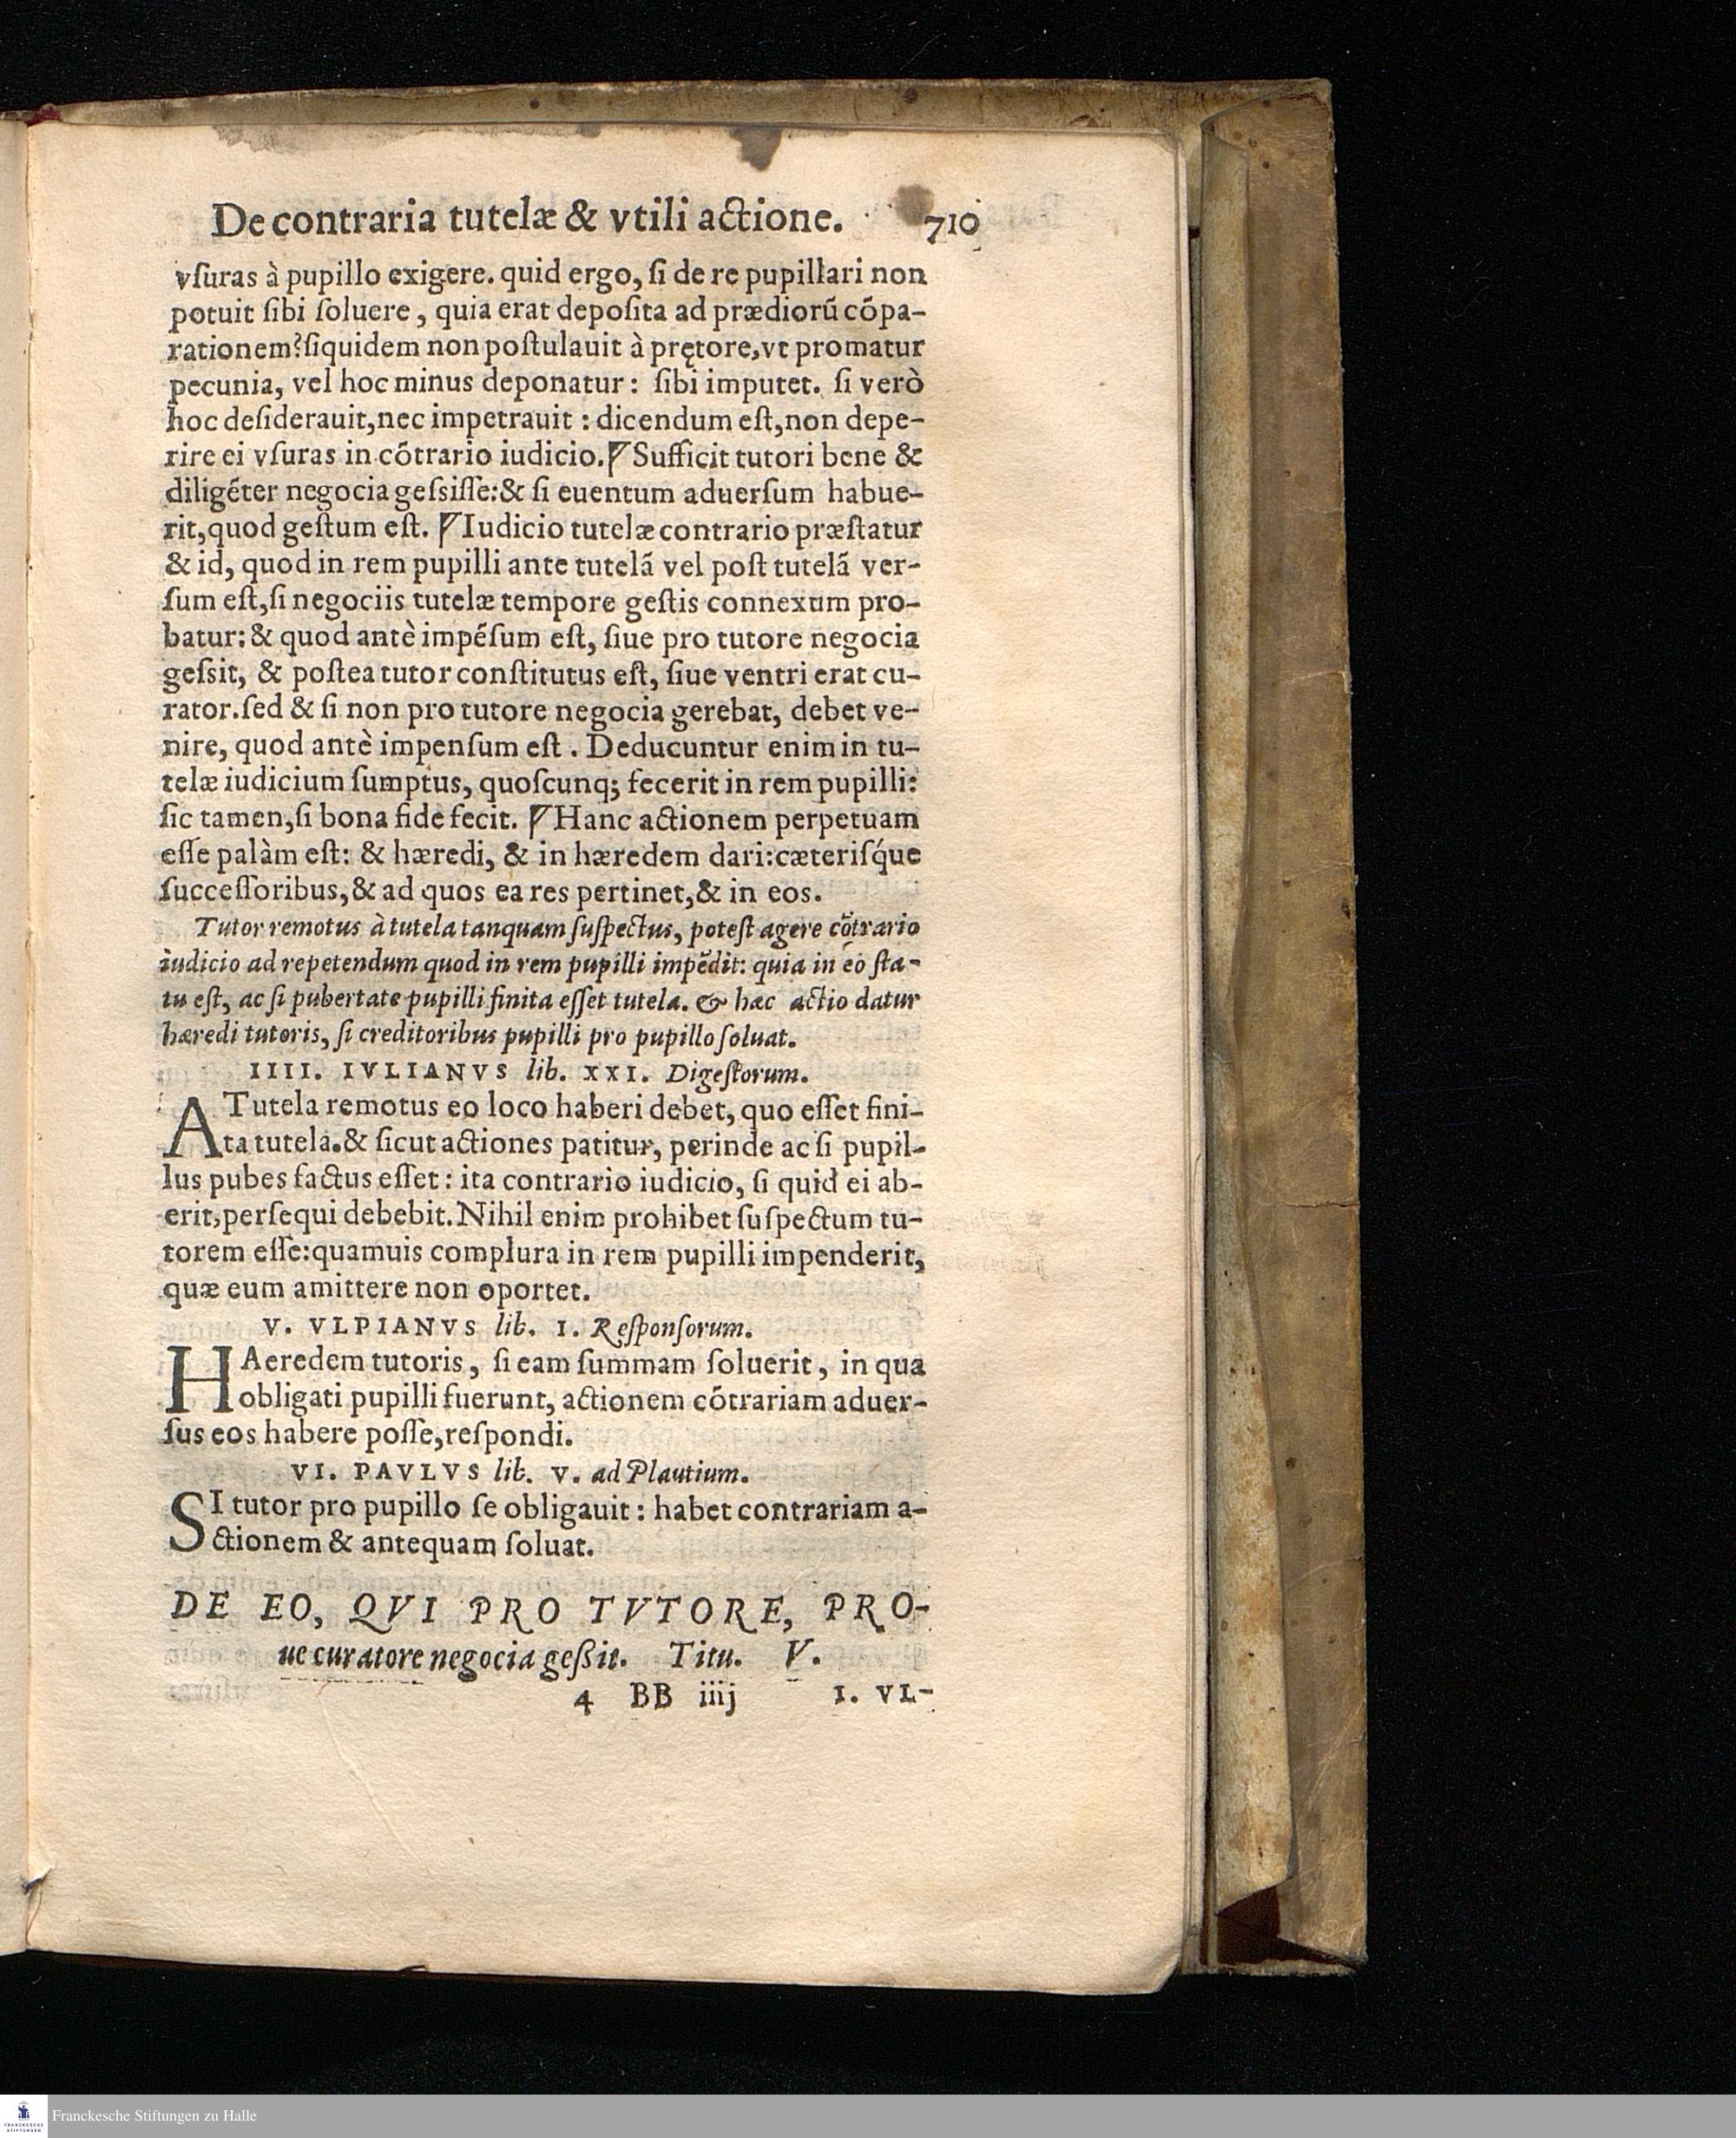 De contraria tutelæ & vtili actione. 710
vſuras à pupillo exigere. quid ergo, ſi de re pupillari non
potuit ſibi ſoluere, quia erat depoſita ad prædiorũ cõpa-
rationem? ſiquidem non poſtulauit à prętore, vt promatur
pecunia, vel hoc minus deponatur: ſibi imputet. ſi verò
hoc deſiderauit, nec impetrauit: dicendum eſt, non depe-
rire ei vſuras in cõtrario iudicio. ¶ Sufficit tutori bene &
diligẽter negocia geſsiſſe: & ſi euentum aduerſum habue-
rit, quod geſtum eſt. ¶ Iudicio tutelæ contrario præſtatur
& id, quod in rem pupilli ante tutelã vel poſt tutelã ver-
ſum eſt, ſi negociis tutelæ tempore geſtis connexum pro-
batur: & quod antè impẽſum eſt, ſiue pro tutore negocia
geſsit, & poſtea tutor conſtitutus eſt, ſiue ventri erat cu-
rator. ſed & ſi non pro tutore negocia gerebat, debet ve-
nire, quod antè impenſum eſt. Deducuntur enim in tu-
telæ iudicium ſumptus, quoſcunq; fecerit in rem pupilli:
ſic tamen, ſi bona fide fecit. ¶ Hanc actionem perpetuam
eſſe palàm eſt: & hæredi, & in hæredem dari: cæteriſq́ue
ſucceſſoribus, & ad quos ea res pertinet, & in eos.
Tutor remotus à tutela tanquam ſuſpectus, poteſt agere cõtrario
iudicio ad repetendum quod in rem pupilli impẽdit: quia in eo ſta-
tu eſt, ac ſi pubertate pupilli finita eſſet tutela. & hæc actio datur
hæredi tutoris, ſi creditoribus pupilli pro pupillo ſoluat.
IIII. IVLIANVS lib. XXI. Digeſtorum.
A Tutela remotus eo loco haberi debet, quo eſſet fini-
ta tutela. & ſicut actiones patitur, perinde ac ſi pupil-
lus pubes factus eſſet: ita contrario iudicio, ſi quid ei ab-
erit, perſequi debebit. Nihil enim prohibet ſuſpectum tu-
torem eſſe: quamuis complura in rem pupilli impenderit,
quæ eum amittere non oportet.
V. VLPIANVS lib. I. Reſponſorum.
HAeredem tutoris, ſi eam ſummam ſoluerit, in qua
obligati pupilli fuerunt, actionem cõtrariam aduer-
ſus eos habere poſſe, reſpondi.
VI. PAVLVS lib. V. ad Plautium.
SI tutor pro pupillo ſe obligauit: habet contrariam a-
ctionem & antequam ſoluat.
DE EO, QVI PRO TVTORE, PRO-
ue curatore negocia geßit. Titu. V.
4 BB iiij I. VL-
Franckesche Stiftungen zu Halle
FRANCKESCHE
STIFTUNGEN